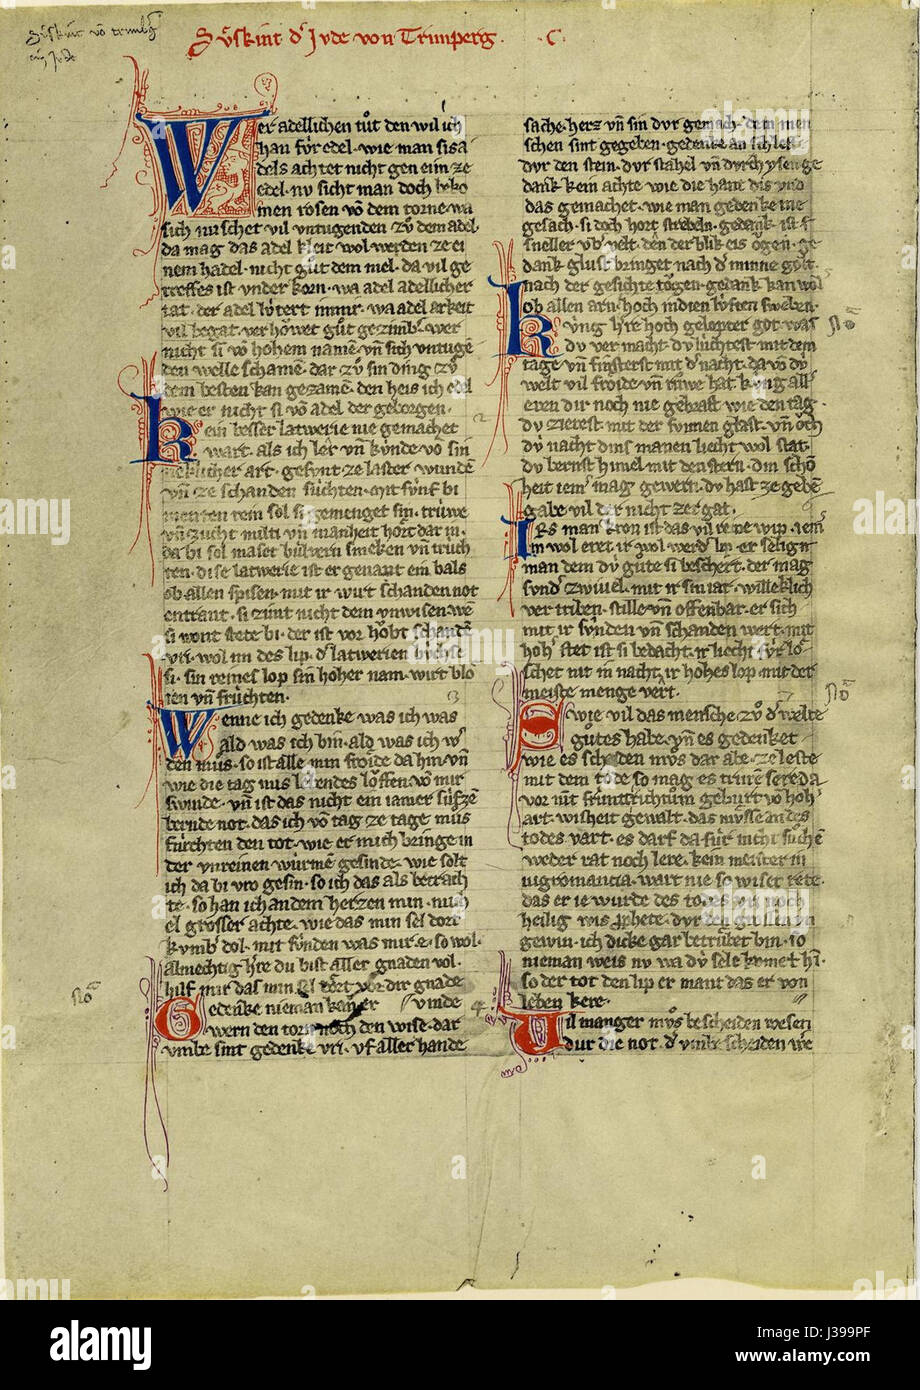 Sůskint võ trimbg
ein Jude
Sůskint dˢ Jude von Trimperg. C
Wer adellichen tůt den wil ich
han fúr edel. wie man sis a
dels achtet nicht gen eim ze
edel. nv sicht man doch
men rosen võ dem torne. wa
sich vil vntugenden zů dem adel.
da mag das adel kleit wol werden ze ei
nem hadel. nicht gůt dem mel. da vil ge
treffes ist vnder korn. wa adel adellicher
tat. wa adel arkeit
vil begat. gůt
nicht si võ hohem namẽ. vñ sich vntugẽ
den welle schamẽ. dar zů sin ding zů
dem besten kan gezamẽ. den heis ich edel
wie er nicht si võ adel der geborgen.
Kein besser latwerie nie gemachet
wart. als ich ler vñ kúnde võ sin
neklicher art. gesunt ze laster wundẽ
vñ ze schanden súchten. mit fúnf bi
menten rein sol si gemenget sin. trúwe
vñ zucht milti vñ manheit hört dar in.
da bi sol smeken vñ truch
ten. dise latwerie ist er genant ein bals
ob allen spisen. mit ir wirt schanden not
entrant. si zimt nicht dem vnwisen. wẽ
si wont stete bi. der ist vor schandẽ
vri. wol im des lip. dˢ latwerien búchse
si. sin reinet lop sin hoher nam. wirt blů
ien vñ fruchten.
Wenne ich gedenke was ich was
ald was ich bin. ald was ich wˢ
den můs. so ist alle min froide da hin. vñ
wie die tag mis lebendes löffen võ mir
swinde. vñ ist das nicht ein iamer súfzẽ
bernde not. das ich võ tag ze tage můs
fúrchten den tot. wie er mich bringe in
der vnreinen wúrme gesinde. wie solt
ich da bi vro gesin. so ich das als betrach
te. so han ich an dem herzen min. mich
el grösser achte. wie das min sel dort
kumb dol. mit súnden was mir e. so wol.
almechtig hˢre du bist aller gnaden vol.
hilf mir das min sel vor dir gnade
Gedenke nieman kan er vinde
wern den torn noch den wisẽ. dar
vmbe sint gedenke vri. vf aller hande
sache. herz vñ sin dur gemach. dem men
schen sint gegeben. gedenke
dur den stein. dur stahel vñ durch ysen. ge
dank kein achte wie die hant dis vnd
das gemachet. wie man gedenke nie
gesach. si doch hort streben. gedank ist
sneller vbˢ velt. den der blik eis ögen. ge
dank glust bringet nach dˢ minne gelt.
nach der gesichte tögen. gedank kan wol
ob allen arn. hoch in dien lúften sweben.
Kúnig hˢre hoch gelopter got was
du vermacht. du lúchtest mit dem
tage vñ finsterst mit dˢ nacht. da võ dú
welt vil froide vñ rúwe hat. kúnig allˢ
eren dir noch nie gebrast. wie den tag
du zierest mit der sunnen glast. vñ öch
dú nacht dins manen liecht wol stat.
du bernst himel mit den stern. din schö
heit iemˢ mag gewern. du hast ze gebẽ
gabe vil der nicht zergat.
Irs man kron ist das vil reine wip. iemˢ
im wol eret ir wol werdˢ lip. er selig
man dem dú gůte si beschert. der mag
sunder zwiuel. mit ir sin iar. willeklich
vertriben. stille vñ offenbar. er sich
mit ir súnden vñ schanden wert. mit
hohˢ stet ist si bedacht. ir liecht
schet nit in nacht. ir hohes lop. mit der
meiste menge vert.
Swie vil das mensche zů dˢ welte
gůtes habe. vñ es gedenket
wie es scheiden můs dar abe. ze leste
mit dem tode so mag es truren sere. da
vor nút frúnt richtům geburt võ hohˢ
art. wisheit gewalt. das můsse an des
todes vart. es darf da fúr nicht sůchẽ
weder rat noch lere. kein meister in
nigromancia. wart nie so wiser rete.
das er ie wurde des todes vri. noch
heilig wis prophete.
gewin. ich dicke gar betrůbet bin. so
nieman weis nv wa dú sele kumet hĩ.
so der tot den lip er mant das er von
leben kere.
Vil manger můs bescheiden wesen
dur die not. dˢ vmbescheiden
alamy
Image ID: J399PF
www.alamy.com